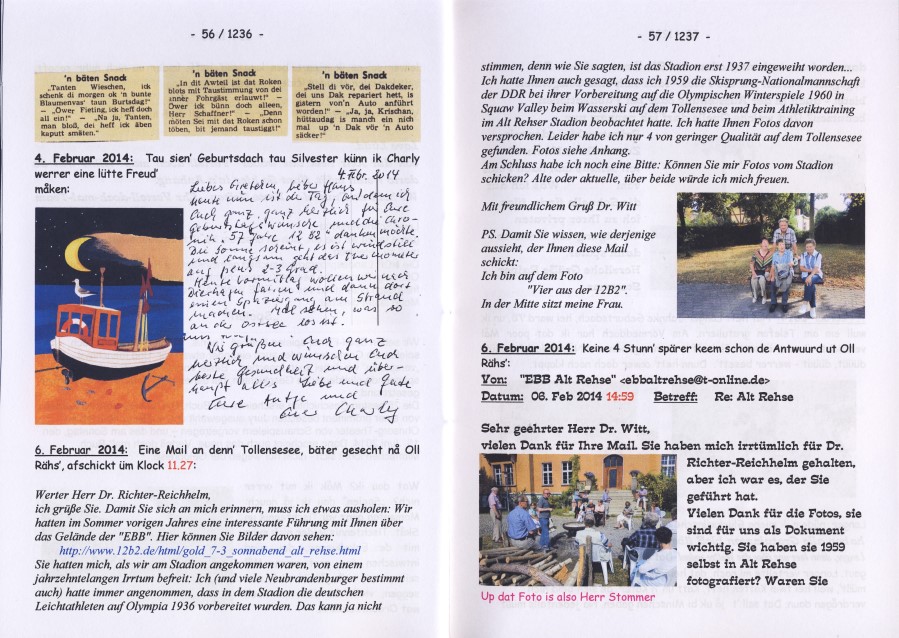 - 56 / 1236 -
'n bäten Snack
„Tanten Wieschen, ick
schenk di morgen ok 'n bunte
Blaumenvas' taun Burtsdag!"
— „Öwer Fieting, ick heff doch
all ein!" — „Na ja, Tanten,
man bloß, dei heff ick äben
kaputt smäten."
'n bäten Snack
„In dit Awteil ist dat Roken
blots mit Taustimmung von dei
anner Fohrgäst erlauwt!" —
„Ower ick bünn doch alleen,
Herr Schaffner!" — „Denn
möten Sei mit dat Roken schon
töben, bit jemand taustiggt!"
'n bäten Snack
„Stell di vör, dei Dakdeker,
dei uns Dak repariert hett, is
güstern von'n Auto anführt
worden!" — „Ja, ja, Krischan,
hüttaudag is manch ein nich
mal up 'n Dak vör 'n Auto
säcker!"
4. Februar 2014: Tau sien' Geburtsdach tau Silvester künn ik Charly
werrer eine lütte Freud'
måken:
4. Febr. 2014
Liebes Gretchen, lieber Hans,
heute nun ist der Tag, an dem ich
Euch ganz, ganz herzlich für Eure
Geburtstagswünsche und die Chro-
nik "57 Jahre 12 B2" danken möchte.
Die Sonne scheint, es ist windstill
und langsam geht das Thermometer
auf plus 2-3 Grad.
Heute Vormittag wollen wir nach
Dierhagen fahren und dann dort
einen Spaziergang am Strand
machen. Mal sehen, was so
an der Ostsee los ist.
Wir grüßen Euch ganz
herzlich und wünschen Euch
beste Gesundheit und über-
haupt alles Liebe und Gute
Eure Antje und
Euer Charly
6. Februar 2014: Eine Mail an denn' Tollensesee, bäter gesecht nå Oll
Rähs', afschickt üm Klock 11.27:
Werter Herr Dr. Richter-Reichhelm,
ich grüße Sie. Damit Sie sich an mich erinnern, muss ich etwas ausholen: Wir
hatten im Sommer vorigen Jahres eine interessante Führung mit Ihnen über
das Gelände der "EBB". Hier können Sie Bilder davon sehen:
http://www.12b2.de/html/gold_7-3_sonnabend_alt_rehse.html
Sie hatten mich, als wir am Stadion angekommen waren, von einem
jahrzehntelangen Irrtum befreit: Ich (und viele Neubrandenburger bestimmt
auch) hatte immer angenommen, dass in dem Stadion die deutschen
Leichtathleten auf Olympia 1936 vorbereitet wurden. Das kann ja nicht
- 57 / 1237 -
stimmen, denn wie Sie sagten, ist das Stadion erst 1937 eingeweiht worden...
Ich hatte Ihnen auch gesagt, dass ich 1959 die Skisprung-Nationalmannschaft
der DDR bei ihrer Vorbereitung auf die Olympischen Winterspiele 1960 in
Squaw Valley beim Wasserski auf dem Tollensesee und beim Athletiktraining
im Alt Rehser Stadion beobachtet hatte. Ich hatte Ihnen Fotos davon
versprochen. Leider habe ich nur 4 von geringer Qualität auf dem Tollensesee
gefunden. Fotos siehe Anhang.
Am Schluss habe ich noch eine Bitte: Können Sie mir Fotos vom Stadion
schicken? Alte oder aktuelle, über beide würde ich mich freuen.
Mit freundlichem Gruß Dr. Witt
PS. Damit Sie wissen, wie derjenige
aussieht, der Ihnen diese Mail
schickt:
Ich bin auf dem Foto
"Vier aus der 12B2".
In der Mitte sitzt meine Frau.
6. Februar 2014: Keine 4 Stunn' spärer keem schon de Antwuurd ut Oll
Rähs':
Von: "EBB Alt Rehse" <ebbaltrehse@t-online.de>
Datum: 06. Feb 2014 14:59 Betreff: Re: Alt Rehse
Sehr geehrter Herr Dr. Witt,
vielen Dank für Ihre Mail. Sie haben mich irrtümlich für Dr.
Richter-Reichhelm gehalten,
aber ich war es, der Sie
geführt hat.
Vielen Dank für die Fotos, sie
sind für uns als Dokument
wichtig. Sie haben sie 1959
selbst in Alt Rehse
fotografiert? Waren Sie
Up dat Foto is also Herr Stommer